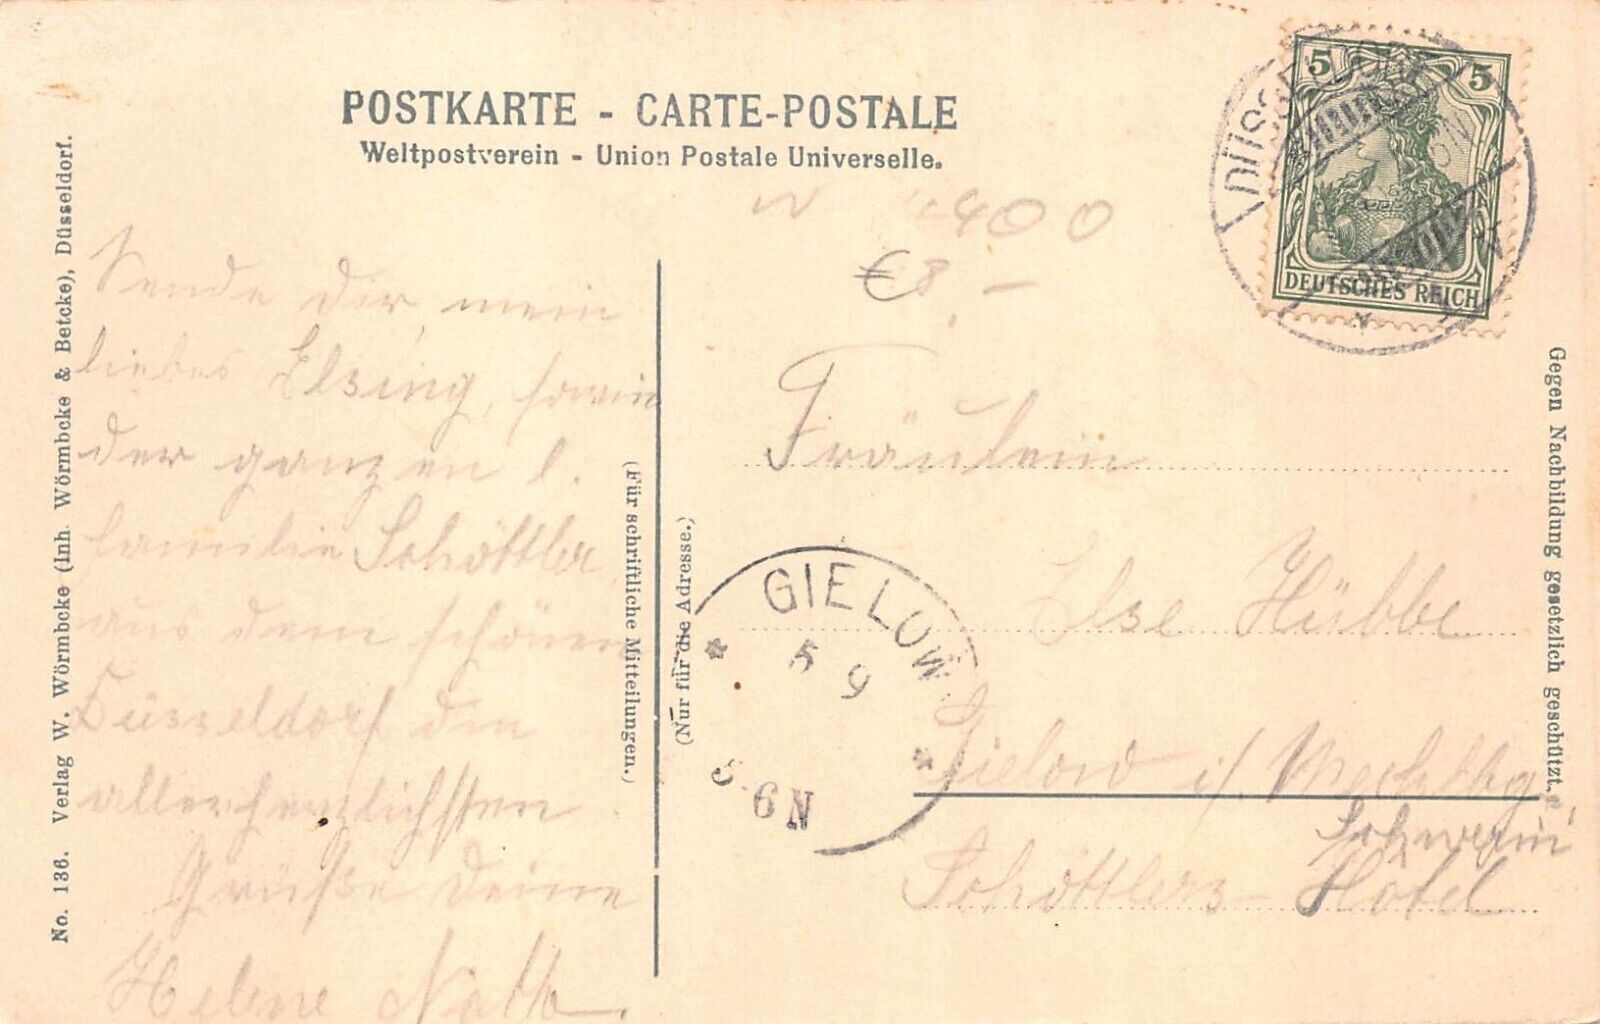 POSTKARTE - CARTE-POSTALE
Weltpostverein - Union Postale Universelle.
No. 136. Verlag W. Wörmbcke (Inh. Wörmbcke & Betcke), Düsseldorf.
Sende dir mein
liebes Elsing, sowie
der ganzen l.
Familie Schöttler
aus dem schönen
Düsseldorf die
allerherzlichsten
Grüße Deine
Helene
(Für schriftliche Mitteilungen.)
(Nur für die Adresse.)
4400
€8 -
5 5
DEUTSCHES REICH
DÜSSELDORF
Fräulein
Else Hübbe
Gielow i/. Mecklbg
Schwerin
Schöttlers-Hotel
GIELOW
5 9
5-6N
Gegen Nachbildung gesetzlich geschützt.